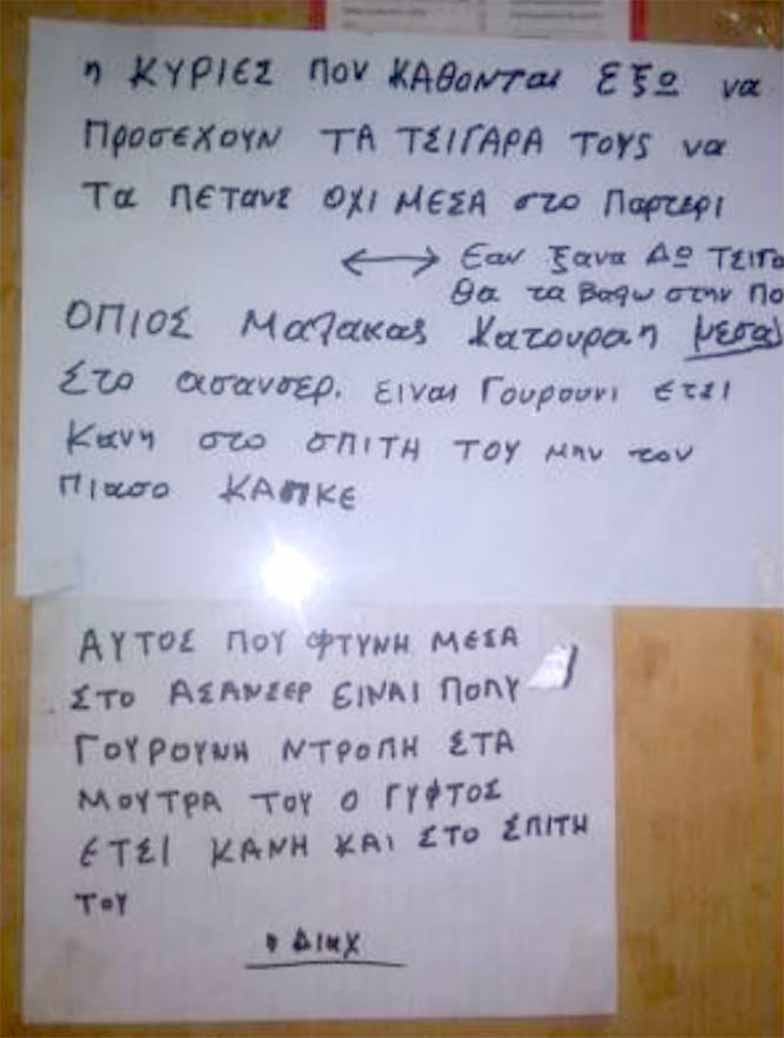 η ΚΥΡΙΕΣ ΠΟΥ ΚΑΘΟΝΤαι ΕΞΩ να
ΠροσΕΧΟΥΝ ΤΑ ΤΣΙΓΑΡΑ ΤΟΥς να
Τα ΠΕΤανε ΟΧΙ ΜΕΣΑ στο Παρτερι
⟷ Εαν ξανα ΔΩ ΤΣΙΓα
Θα τα βαψω στην Πο
ΟΠΙΟΣ Μαλακας Κατουραη μεσα
Στο ασανσερ. ειναι Γουρουνι ετσι
Κανη στο σΠΙΤΗ ΤΟΥ μην τον
Πιασο ΚΑΠΚΕ
ΑΥΤΟΣ ΠΟΥ ΦΤΥΝΗ ΜΕΣΑ
ΣΤΟ ΑΣΑΝΣΕΡ ΕΙΝΑΙ ΠΟΛΥ
ΓΟΥΡΟΥΝΗ ΝΤΡΟΠΗ ΣΤΑ
ΜΟΥΤΡΑ ΤΟΥ Ο ΓΥΦΤΟΣ
ΕΤΣΙ ΚΑΝΗ ΚΑΙ ΣΤΟ ΣΠΙΤΗ
ΤΟΥ
η Διαχ